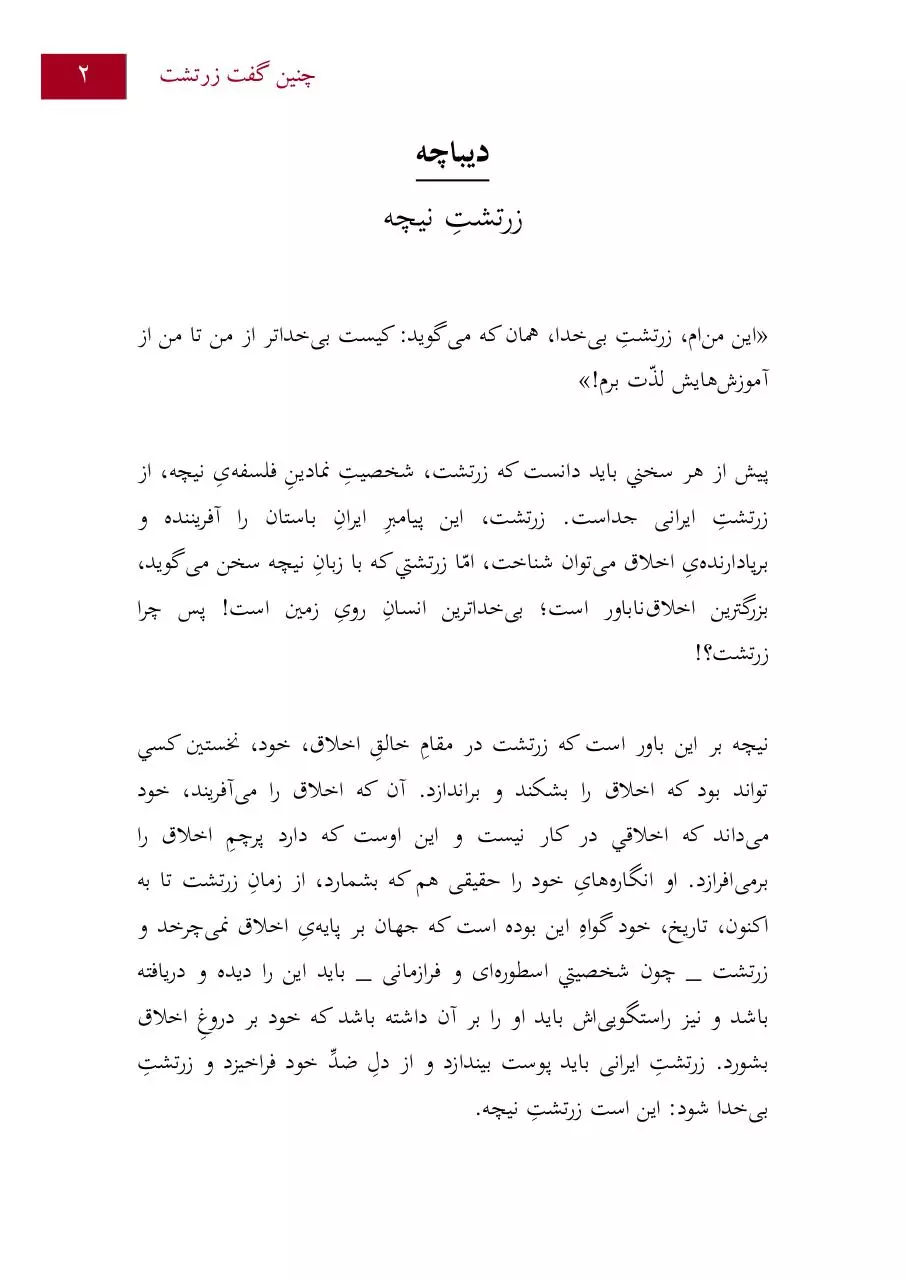 چنین گفت زرتشت ۲
دیباچه
زرتشتِ نیچه
«این من‌ام، زرتشتِ بی‌خدا، همان که می‌گوید: کیست بی‌خداتر از من تا من از
آموزش‌هایش لذّت برم!»
پیش از هر سخني باید دانست که زرتشت، شخصیتِ نمادینِ فلسفه‌یِ نیچه، از
زرتشتِ ایرانی جداست. زرتشت، این پیامبرِ ایرانِ باستان را آفریننده و
برپادارنده‌یِ اخلاق می‌توان شناخت، امّا زرتشتي که با زبانِ نیچه سخن می‌گوید،
بزرگترین اخلاق‌ناباور است؛ بی‌خداترین انسانِ رویِ زمین است! پس چرا
زرتشت؟!
نیچه بر این باور است که زرتشت در مقامِ خالقِ اخلاق، خود، نخستین کسي
تواند بود که اخلاق را بشکند و براندازد. آن که اخلاق را می‌آفریند، خود
می‌داند که اخلاقي در کار نیست و این اوست که دارد پرچمِ اخلاق را
برمی‌افرازد. او انگاره‌هایِ خود را حقیقی هم که بشمارد، از زمانِ زرتشت تا به
اکنون، تاریخ، خود گواهِ این بوده است که جهان بر پایه‌یِ اخلاق نمی‌چرخد و
زرتشت _ چون شخصیتي اسطوره‌ای و فرازمانی _ باید این را دیده و دریافته
باشد و نیز راستگویی‌اش باید او را بر آن داشته باشد که خود بر دروغِ اخلاق
بشورد. زرتشتِ ایرانی باید پوست بیندازد و از دلِ ضدِّ خود فراخیزد و زرتشتِ
بی‌خدا شود: این است زرتشتِ نیچه.